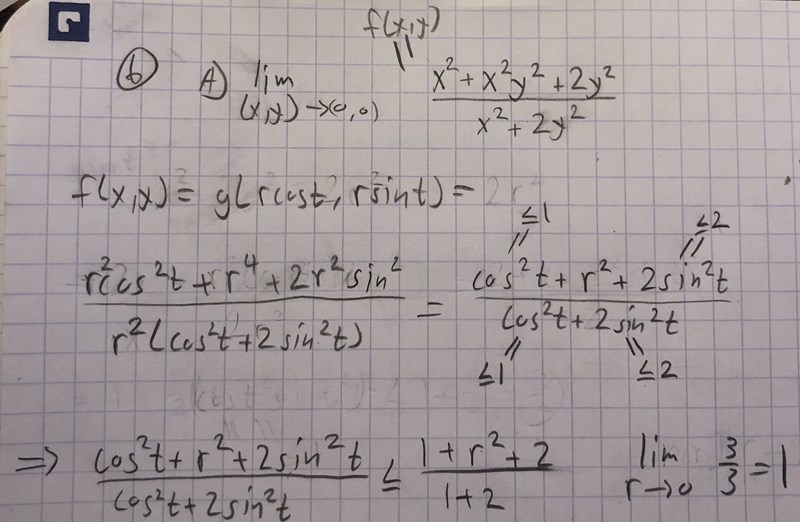 f(x,y)
=
(b) A) lim (x,y)→(0,0) (x² + x²y² + 2y²)/(x² + 2y²)
f(x,y) = g(r cos t, r sin t) =
≤1 ≤2
(r²cos²t + r⁴ + 2r² sin²)/(r²(cos²t + 2 sin²t)) = (cos²t + r² + 2 sin²t)/(cos²t + 2 sin²t)
≤1 ≤2
⇒ (cos²t + r² + 2 sin²t)/(cos²t + 2 sin²t) ≤ (1 + r² + 2)/(1 + 2) lim r→0 3/3 = 1